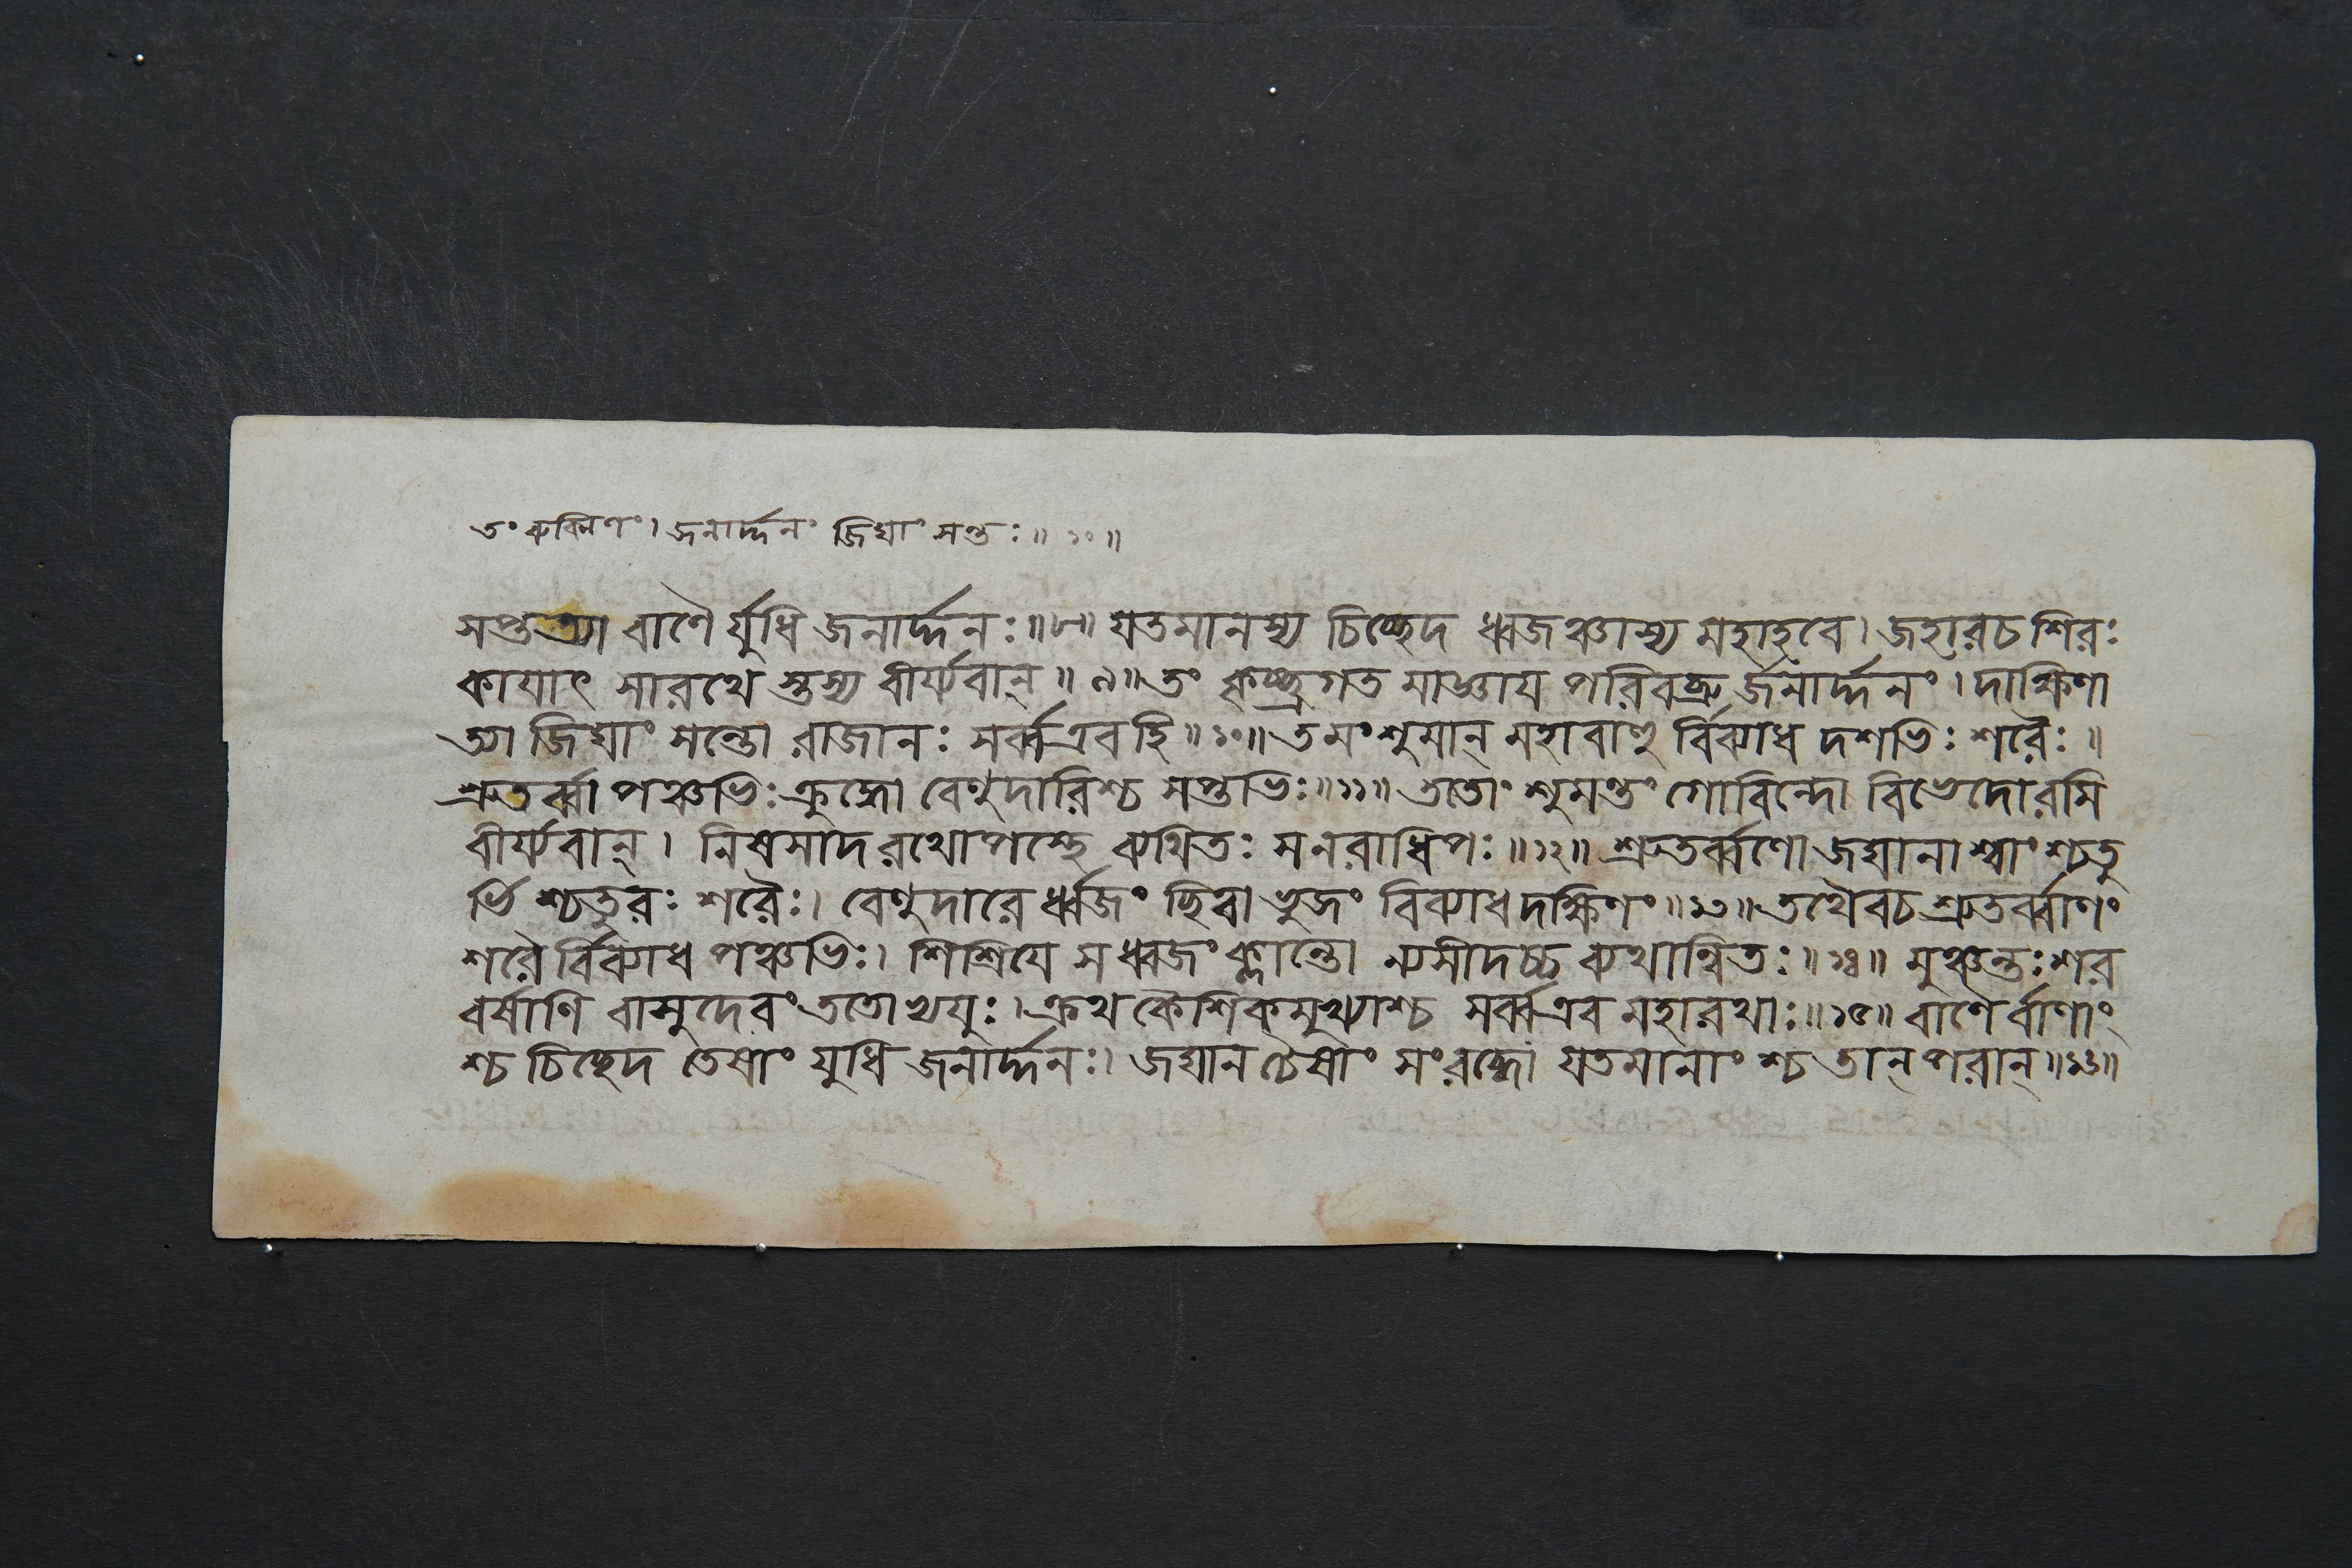 তং ৰুক্মিণং। জনাৰ্দ্দনং জিঘাংসন্তঃ॥ ১০॥
সপ্তত্যা বাণৈ ৰ্যুধি জনাৰ্দ্দনঃ॥৮॥ যতমানস্য চিচ্ছেদ ধ্বজঞ্চাস্য মহাহবে। জহাৰচ শিৰঃ
কাযাৎ সাৰথে স্তস্য বীৰ্য্যবান্॥ ৯॥ তং কৃচ্ছ্ৰগত মাজ্ঞায পৰিবব্ৰু ৰ্জনাৰ্দ্দনং। দাক্ষিণা
ত্যা জিঘাংসন্তো ৰাজানঃ সৰ্ব্বএবহি॥ ১০॥ তমংশুমান্ মহাবাহু ৰ্বিব্যাধ দশভিঃ শৰৈঃ॥
শ্ৰুতৰ্ব্বা পঞ্চভিঃ ক্ৰুদ্ধো বেণুদাৰিশ্চ সপ্তভিঃ॥১১॥ ততোংশুমন্তং গোবিন্দো বিভেদোৰসি
বীৰ্য্যবান্। নিষসাদ ৰথোপস্থে ব্যথিতঃ সনৰাধিপঃ॥১২॥ শ্ৰুতৰ্ব্বণো জঘানাশ্বাং শ্চতু
ৰ্ভি শ্চতুৰঃ শৰৈঃ। বেণুদাৰে ৰ্ধ্বজং ছিত্বা ভুজং বিব্যাধ দক্ষিণং॥১৩॥ তথৈবচ শ্ৰুতৰ্ব্বাণং
শৰৈ ৰ্বিব্যাধ পঞ্চভিঃ। শিশ্ৰিযে স ধ্বজং ক্লান্তো ন্যসীদচ্চ ব্যথান্বিতঃ॥১৪॥ মুঞ্চন্তঃ শৰ
বৰ্ষাণি বাসুদেবং ততোভ্যযুঃ। ক্ৰথকৈশিকমুখ্যাশ্চ সৰ্ব্বএব মহাৰথাঃ॥১৫॥ বাণৈ ৰ্বাণাং
শ্চ চিচ্ছেদ তেষাং যুধি জনাৰ্দ্দনঃ। জঘান চৈষাং সংৰব্ধো যতমানাং শ্চ তান্ পৰান্॥১৬॥